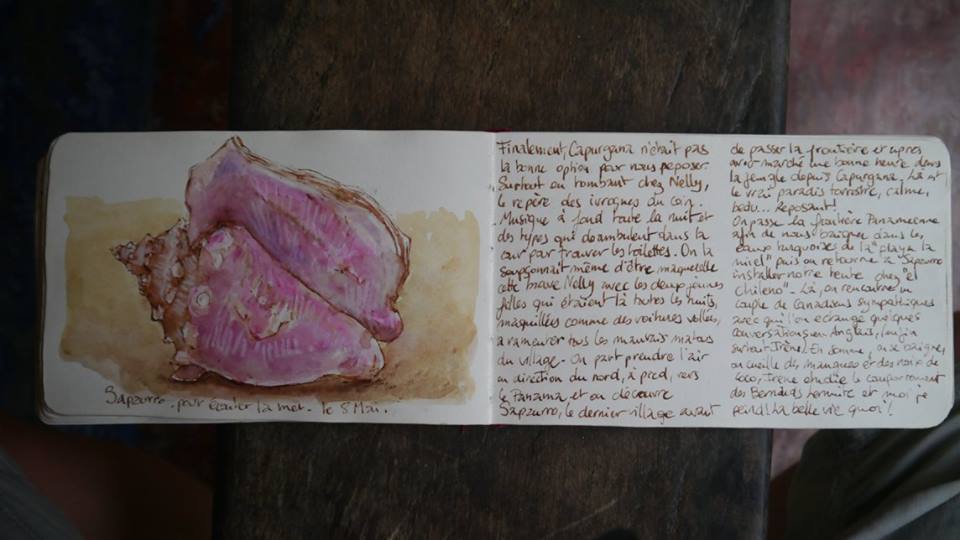 Sapzurro - pour écouter la mer. le 8 Mai.
Finalement, Capurgana n'était pas
la bonne option pour nous reposer.
Surtout en tombant chez Nelly,
le repère des ivrognes du coin.
Musique à fond toute la nuit et
des types qui deambulent dans la
cour par trouver les toilettes. On la
soupçonnait même d'être maquerelle
cette brave Nelly avec les deux jeunes
filles qui étaient là toutes les nuits,
maquillées comme des voitures volées,
à rameuter tous les mauvais matous
du village. On part prendre l'air
en direction du nord, à pied, vers
le Panama, et on découvre
Sapzurro, le dernier village avant
de passer la frontière et après
avoir marché une bonne heure dans
la jungle depuis Capurgana. Là est
le vrai paradis terrestre, calme,
beau... Reposant!
On passe la frontière Panaméenne
afin de nous baigner dans les
eaux turquoises de la "playa la
miel" puis on retourne à Sapzurro
installer notre tente chez "el
chileno". Là, on rencontre un
couple de Canadiens sympathiques
avec qui l'on échange quelques
conversations en Anglais,
surtout Irène). En somme, on se baigne,
on cueille des mangues et des noix de
coco, Irène étudie le comportement
des Bernards hermite et moi je
peins! La belle vie quoi!